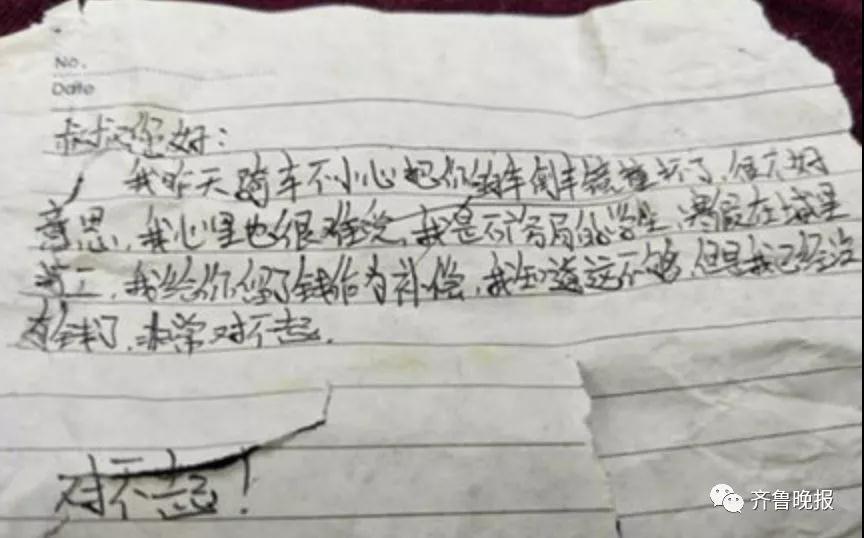 No.
Date
叔叔您好：
我昨天骑车不小心把你的车倒车镜撞坏了，很不好
意思，我心里也很难受，我是一名高的学生，寒假在城里
打工，我给你留了钱作为补偿，我知道这不够，但是我已经没
有钱了，非常对不起。
对不起！
齐鲁晚报